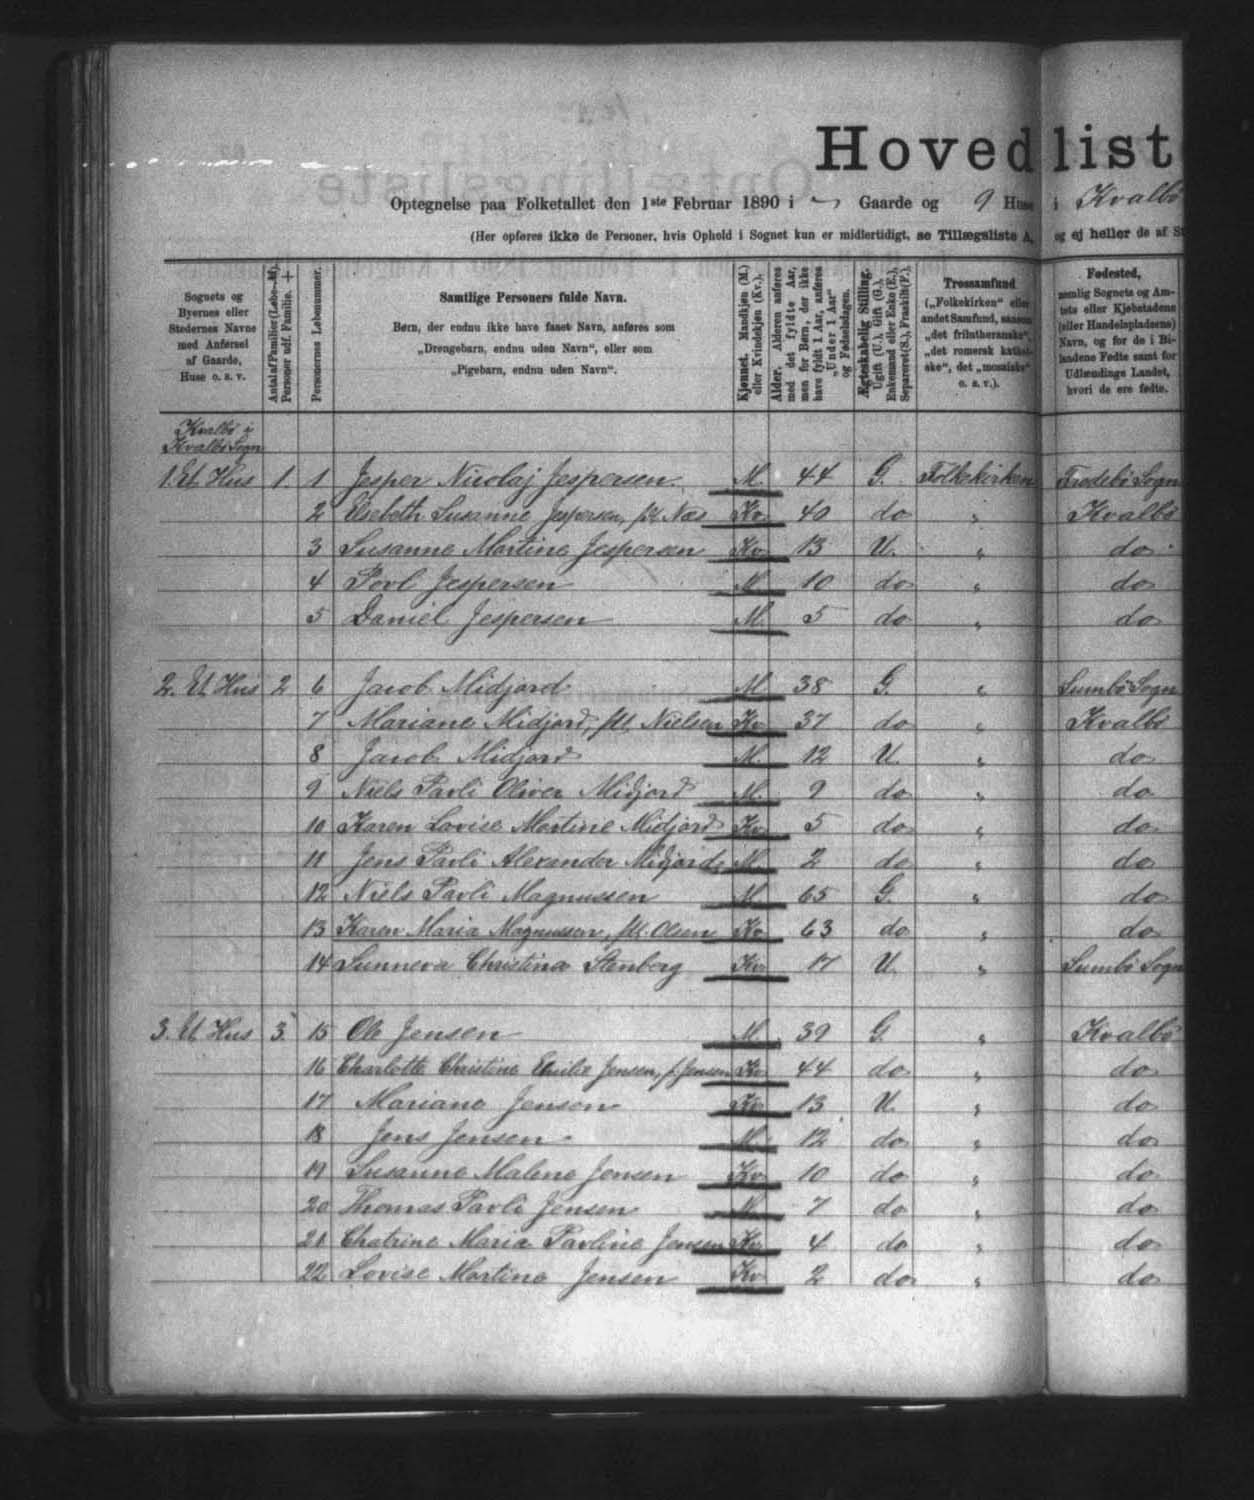 Hovedlist
Optegnelse paa Folketallet den 1ste Februar 1890 i ~ Gaarde og 9 Huse i Kvalbö
(Her opføres ikke de Personer, hvis Ophold i Sognet kun er midlertidigt, se Tillægsliste A, og ej heller de af St
Sognets og Byernes eller Stedernes Navne med Anførsel af Gaarde, Huse o. s. v.
Antal af Familier (Løbe-№).
Personer udf. Familie. +
Personernes Løbenummer.
Samtlige Personers fulde Navn.
Børn, der endnu ikke have faaet Navn, anføres som
„Drengebarn, endnu uden Navn", eller som
„Pigebarn, endnu uden Navn".
Kjønnet. Mandkjøn (M.) eller Kvindekjøn (Kv.).
Alder. Alderen anføres med det fyldte Aar, men for Børn, der ikke have fyldt 1 Aar, anføres „Under 1 Aar" og Fødselsdagen.
Ægteskabelig Stilling. Ugift (U.), Gift (G.), Enkemand eller Enke (E.), Separeret (S.), Fraskilt (F.).
Trossamfund („Folkekirken" eller andet Samfund, saasom „det frilutheranske", „det romersk katholske", det „mosaiske" o. s. v.).
Fødested, nemlig Sognets og Amtets eller Kjøbstadens (eller Handelspladsens) Navn, og for de i Bilandene Fødte samt for Udlændinge Landet, hvori de ere fødte.
Kvalbö i
Kvalbö Sogn
1. Et Hus 1 1 Jesper Nicolaj Jespersen M. 44 G. Folkekirken Frodebö Sogn
2 Elsebeth Susanne Jespersen, f. Næs Kv. 40 do " Kvalbö
3 Susanne Martine Jespersen Kv. 13 U. " do
4 Povl Jespersen M. 10 do " do
5 Daniel Jespersen M. 5 do " do
2. Et Hus 2 6 Jacob Midjord M. 38 G. " Sumbö Sogn
7 Mariane Midjord, f. Nielsen Kv. 37 do " Kvalbö
8 Jacob Midjord M. 12 U. " do
9 Niels Pavli Oliver Midjord M. 9 do " do
10 Karen Lovise Martine Midjord Kv. 5 do " do
11 Jens Pavli Alexander Midjord M. 2 do " do
12 Niels Pavli Magnussen M. 65 G. " do
13 Karen Maria Magnussen, f. Olsen Kv. 63 do " do
14 Sunneva Christina Stenberg Kv. 17 U. " Sumbö Sogn
3. Et Hus 3 15 Ole Jensen M. 39 G. " Kvalbö
16 Charlotte Christine Emilie Jensen, f. Jensen Kv. 44 do " do
17 Mariane Jensen Kv. 13 U. " do
18 Jens Jensen M. 12 do " do
19 Susanne Malene Jensen Kv. 10 do " do
20 Thomas Pavli Jensen M. 7 do " do
21 Chatrine Maria Pavline Jensen Kv. 4 do " do
22 Lovise Martine Jensen Kv. 2 do " do